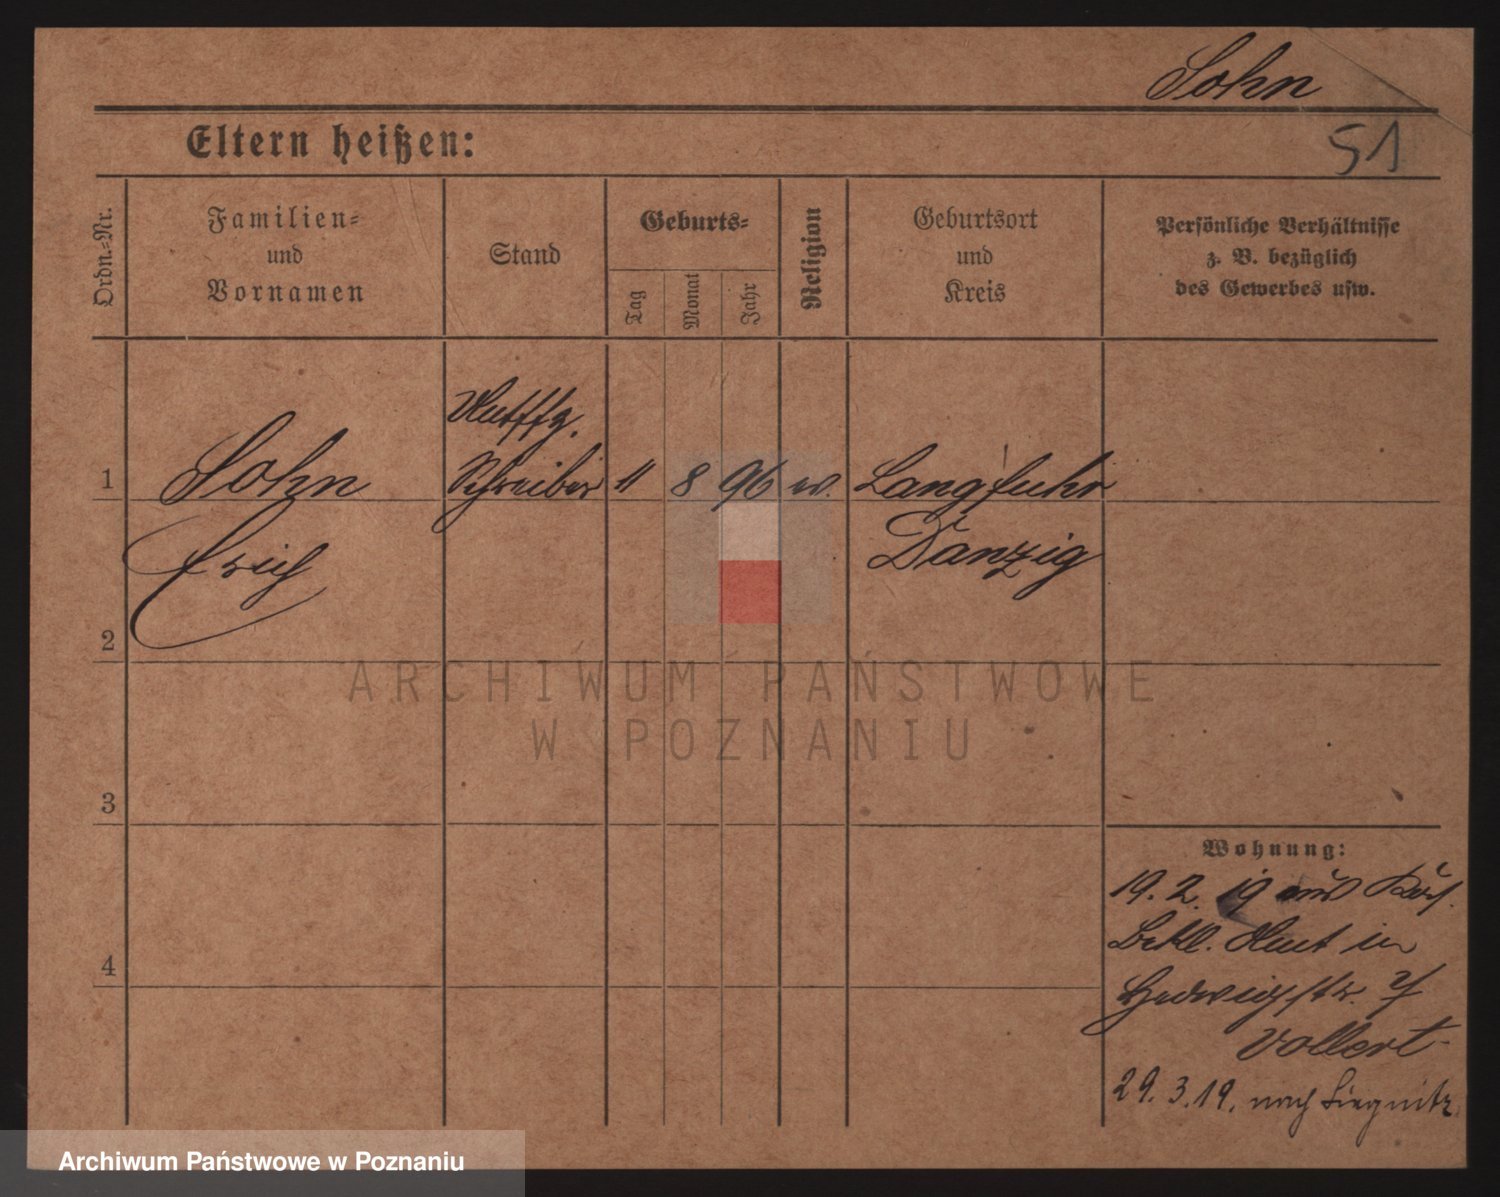 Sohn
51
Eltern heißen:
Ordn.-Nr.
Familien-
und
Vornamen
Stand
Geburts-
Tag
Monat
Jahr
Religion
Geburtsort
und
Kreis
Persönliche Verhältnisse
z. B. bezüglich
des Gewerbes usw.
1
Sohn
Schreiber
11 8 96 ev.
Langfuhr
Erich
Danzig
2
ARCHIWUM PAŃSTWOWE
W POZNANIU
3
4
Wohnung:
19. 2. 19 aus
Bekl. Amt in
Hedwigstr.
Vollert
29. 3. 19. nach Liegnitz
Archiwum Państwowe w Poznaniu